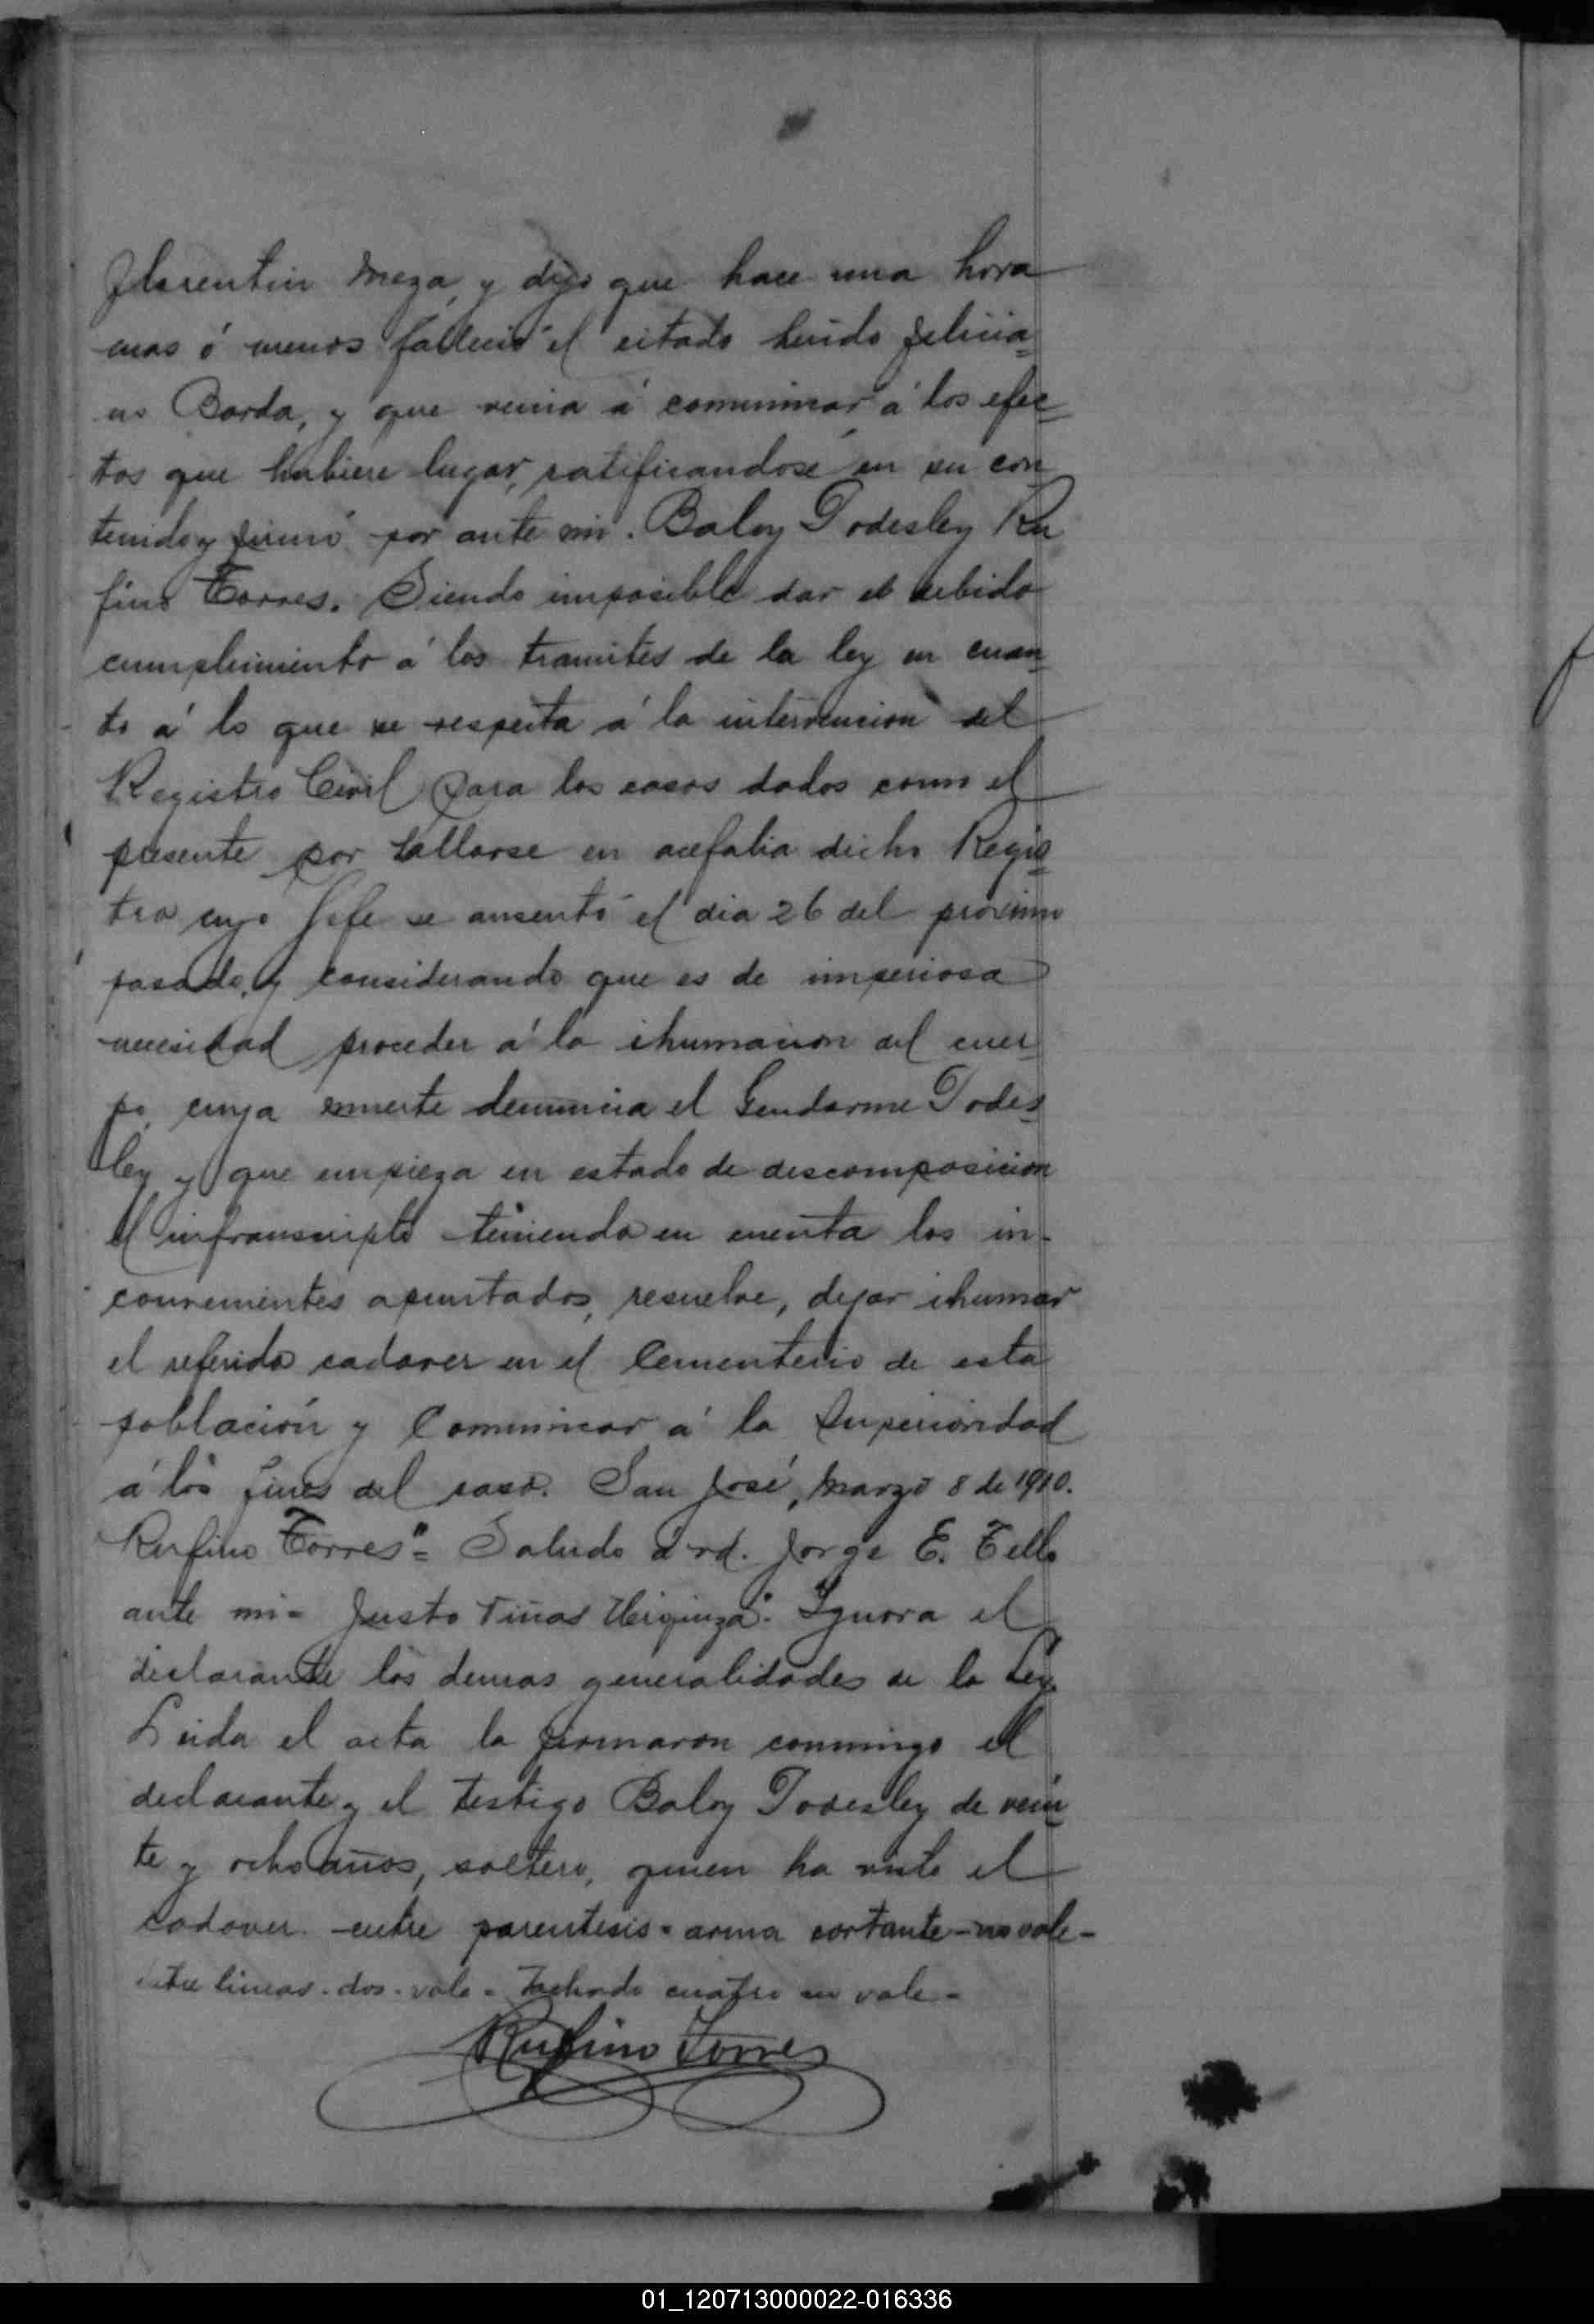 Florentin Meza, y dijo que hace una hora
mas ó menos falleció el citado herido Felicia=
no Borda, y que venia á comunicar á los efec=
tos que hubiere lugar, ratificandose en su con
tenido y firmó por ante mi. Baloy Godesley Ru
fino Torres. Siendo imposible dar el debido
cumplimiento á los tramites de la ley en cuan=
to á lo que se respecta á la intervencion del
Registro Civil para los casos dados como el
presente por hallarse en acefalia dicho Regis=
tro cuyo Jefe se ausentó el dia 26 del proximo
pasado, y considerando que es de imperiosa
necesidad proceder á la ihumacion del cuer=
po, cuya muerte denuncia el Gendarme Godes=
ley y que empieza en estado de descomposicion
el infranscripto teniendo en cuenta los in-
convenientes apuntados, resuelve, dejar ihumar
el referido cadaver en el Cementerio de esta
población y Comunicar á la Superioridad
á los fines del caso. San José, Marzo 8 de 1910.
Rufino Torres"= Saludo á Vd. Jorge E. Tello
ante mi= Justo Viñas". Ignora el
declarante las demas generalidades de la Ley.
Leida el acta la firmaron conmingo el
declarante y el testigo Baloy Godesley de vein=
te y ocho años, soltero, quien ha visto el
cadaver. entre parentesis = arma cortante - no vale -
entre lineas - dos - vale = Tachado cuatro no vale =
Rufino Torres
01_120713000022-016336